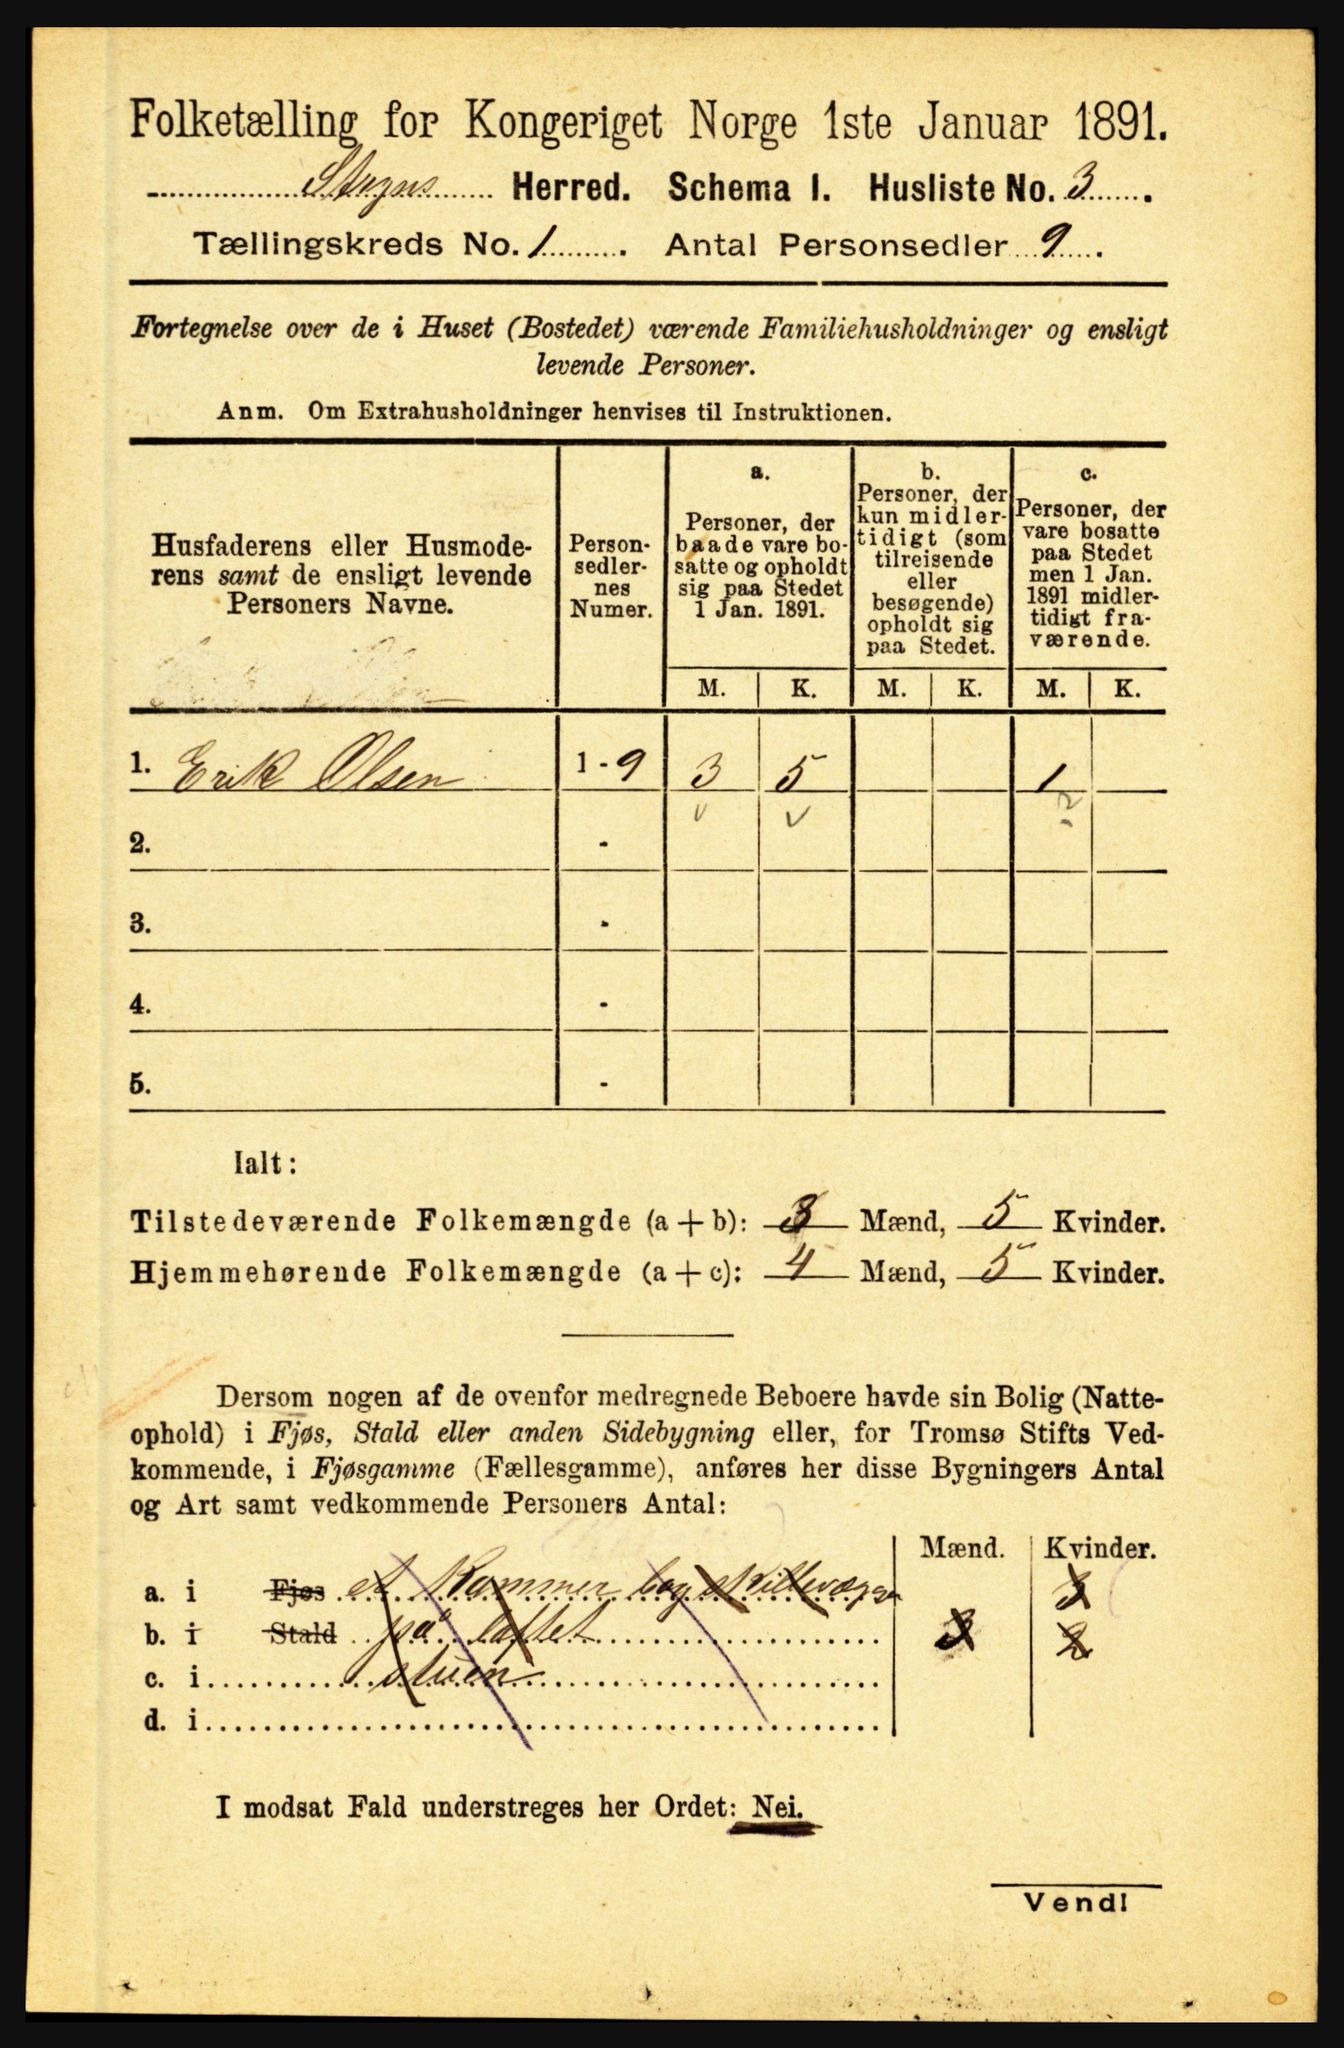 Folketælling for Kongeriget Norge 1ste Januar 1891.
Herred. Schema I. Husliste No. 3.
Tællingskreds No. 1. Antal Personsedler 9.
Fortegnelse over de i Huset (Bostedet) værende Familiehusholdninger og ensligt
levende Personer.
Anm. Om Extrahusholdninger henvises til Instruktionen.
Husfaderens eller Husmode-
rens samt de ensligt levende
Personers Navne.
Person-
sedler-
nes
Numer.
a.
Personer, der
baade vare bo-
satte og opholdt
sig paa Stedet
1 Jan. 1891.
b.
Personer, der
kun midler-
tidigt (som
tilreisende
eller
besøgende)
opholdt sig
paa Stedet.
c.
Personer, der
vare bosatte
paa Stedet
men 1 Jan.
1891 midler-
tidigt fra-
værende.
M. K. M. K. M. K.
1. Erik Olsen 1-9 3 5 1
2. -
3. -
4. -
5. -
Ialt:
Tilstedeværende Folkemængde (a + b): 3 Mænd, 5 Kvinder.
Hjemmehørende Folkemængde (a + c): 4 Mænd, 5 Kvinder.
Dersom nogen af de ovenfor medregnede Beboere havde sin Bolig (Natte-
ophold) i Fjøs, Stald eller anden Sidebygning eller, for Tromsø Stifts Ved-
kommende, i Fjøsgamme (Fællesgamme), anføres her disse Bygningers Antal
og Art samt vedkommende Personers Antal:
Mænd. Kvinder.
a. i Fjøs et Kammer 3
b. i Stald på loftet 3 2
c. i stuen
d. i
I modsat Fald understreges her Ordet: Nei.
Vend!